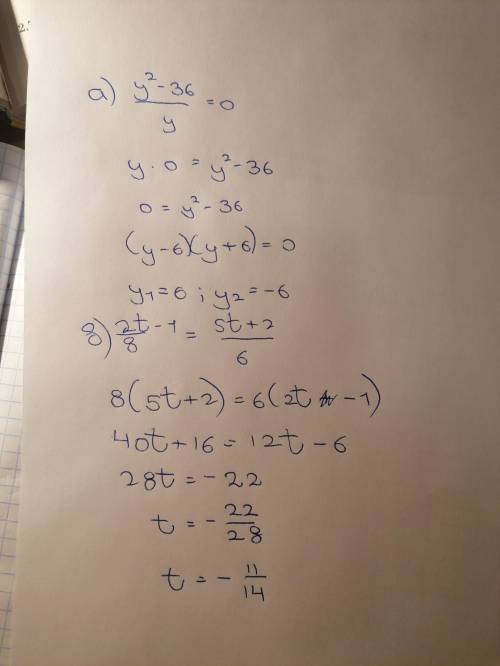 а) y² - 36 / y = 0
y · 0 = y² - 36
0 = y² - 36
(y - 6)(y + 6) = 0
y1 = 6 ; y2 = -6
в) 2t - 1 / 8 = 5t + 2 / 6
8(5t + 2) = 6(2t - 1)
40t + 16 = 12t - 6
28t = - 22
t = - 22 / 28
t = - 11 / 14